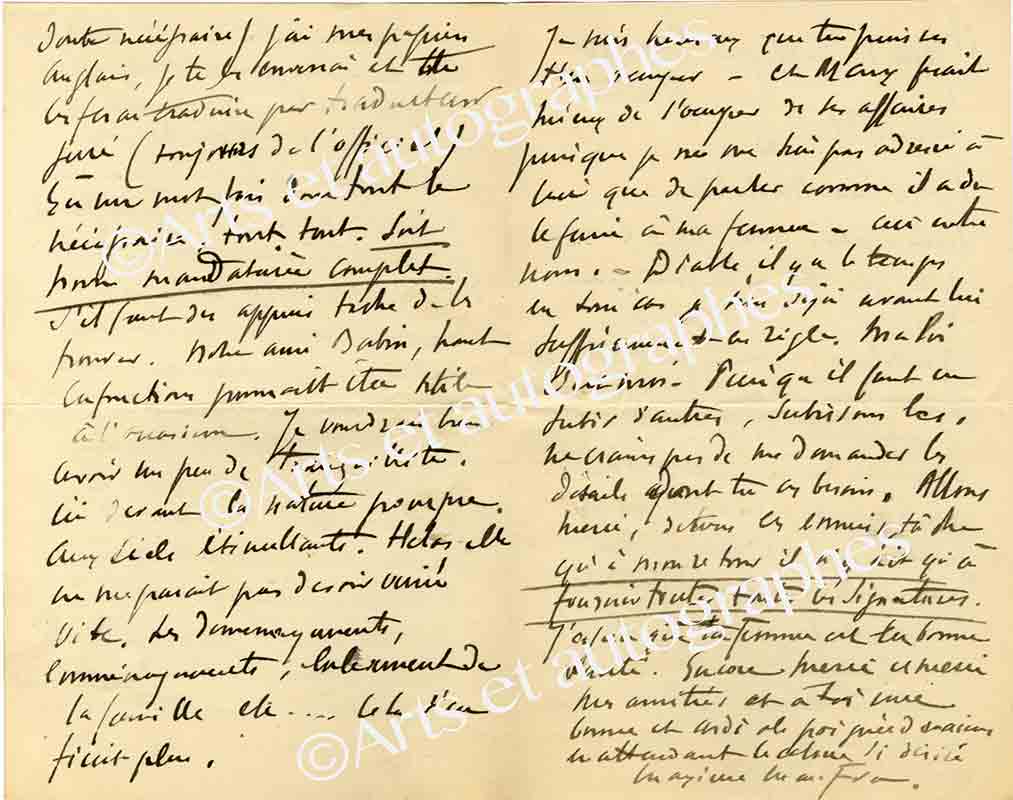 doute nécessaire) j'ai mes papiers
Anglais, je te les enverrai et tu
les feras traduire par traducteur
juré (toujours de l'officiel)
En un mot fais tout le
nécessaire. tout. tout. Soit
notre mandataire complet.
S'il faut des appuis tache de les
trouver. Notre ami Babin, haut
en fonctions pourrait être utile
à l'occasion. Je voudrais bien
avoir un peu de tranquilité.
ici devant la nature pourpre.
aux ciels étincellants. Helas elle
ne me parait pas devoir venir
vite. Les demenagements,
emmenagements, enterrement de
la famille etc.... Cela n'en
finit plus.
Je suis heureux que tu puisses
t'en occuper - et Manx
mieux de s'occuper de ses affaires
puisque je ne me suis pas adressé à
lui que de parler comme il a du
le faire à ma femme - ceci entre
nous. - Diable, il y a le temps
en tout cas
suffisamment en règle. Ma foi
Puisqu'il faut en
subir d'autres, subissons les.
ne crains pas de me demander les
détails dont tu as besoin. Allons
merci, de tous ces ennuis, tâche
qu'à mon retour il n'y ait qu'à
fournir toutes les signatures.
J'espère que ta femme est en bonne
santé. Encore merci et merci
mes amitiés et à toi une
bonne et cordiale poignée de mains
en attendant le calme si désiré
Maxime Maufra.
©Arts et autographes
©Arts et autographes
©Arts et autographes